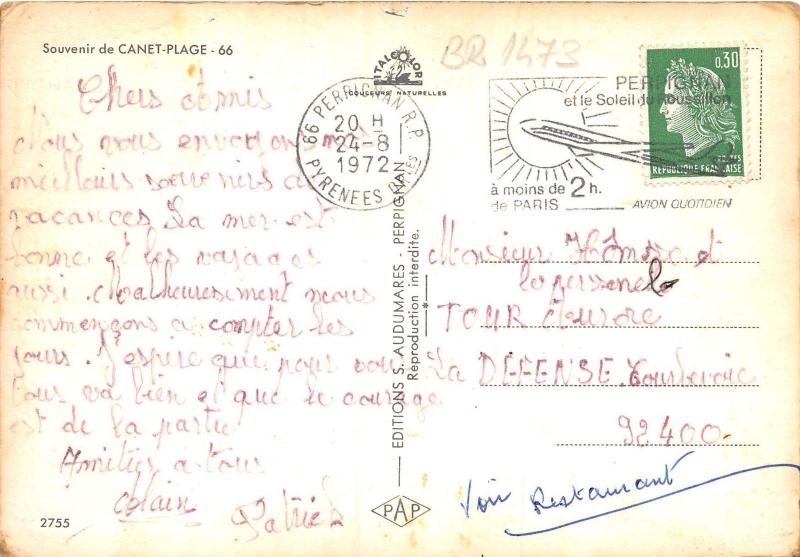 Souvenir de CANET-PLAGE - 66
ITALCOLOR
COULEURS NATURELLES
BR 1473
Chers Amis
Nous vous envoyons nos
meilleurs souvenirs de
vacances La mer est
bonne et les voyages
aussi. Malheureusement nous
commençons a compter les
jours. J'espère que pour vous
tous va bien et que le courage
est de la partie
Amitiés a tous
Alain
Patrick
2755
66 PERPIGNAN R.P.
20 H
24-8
1972
PYRENEES OLES
PERPIGNAN
et le Soleil du Roussillon
à moins de 2 h.
de PARIS
AVION QUOTIDIEN
0,30
POSTES
REPUBLIQUE FRANÇAISE
EDITIONS S. AUDUMARES - PERPIGNAN
Reproduction interdite.
Monsieur et
le personnel
TOUR Aurore
La DEFENSE Courbevoie
92400
Voir Restaurant
PAP